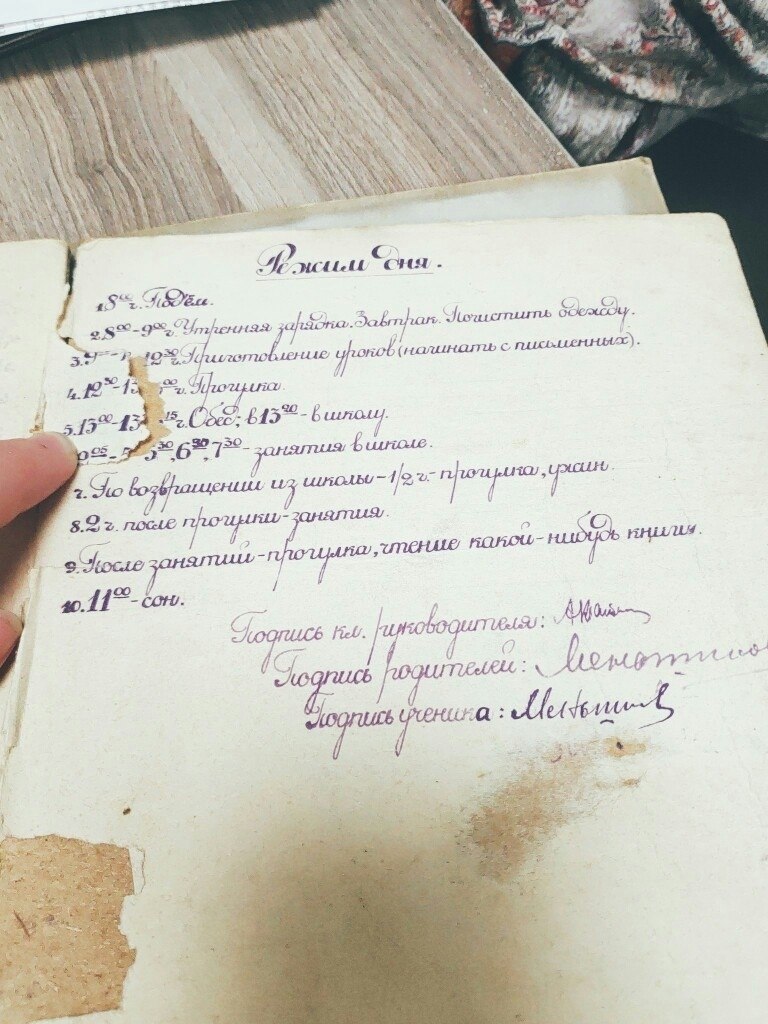 Режим дня.
1. 8⁰⁰ч. Подъём.
2. 8⁰⁰-9⁰⁰ч. Утренняя зарядка. Завтрак. Почистить одежду.
3. 12³⁰ч. Приготовление уроков (начинать с письменных).
4. 12³⁰-13⁰⁰ч. Прогулка.
5. 13⁰⁰-13¹⁵ч. Обед; в 13²⁰-в школу.
6³⁰, 7³⁰-занятия в школе.
7. По возвращении из школы-1/2 ч.-прогулка, ужин.
8. 2 ч. после прогулки-занятия.
9. После занятий-прогулка, чтение какой-нибудь книги.
10. 11⁰⁰-сон.
Подпись кл. руководителя:
Подпись родителей:
Подпись ученика: